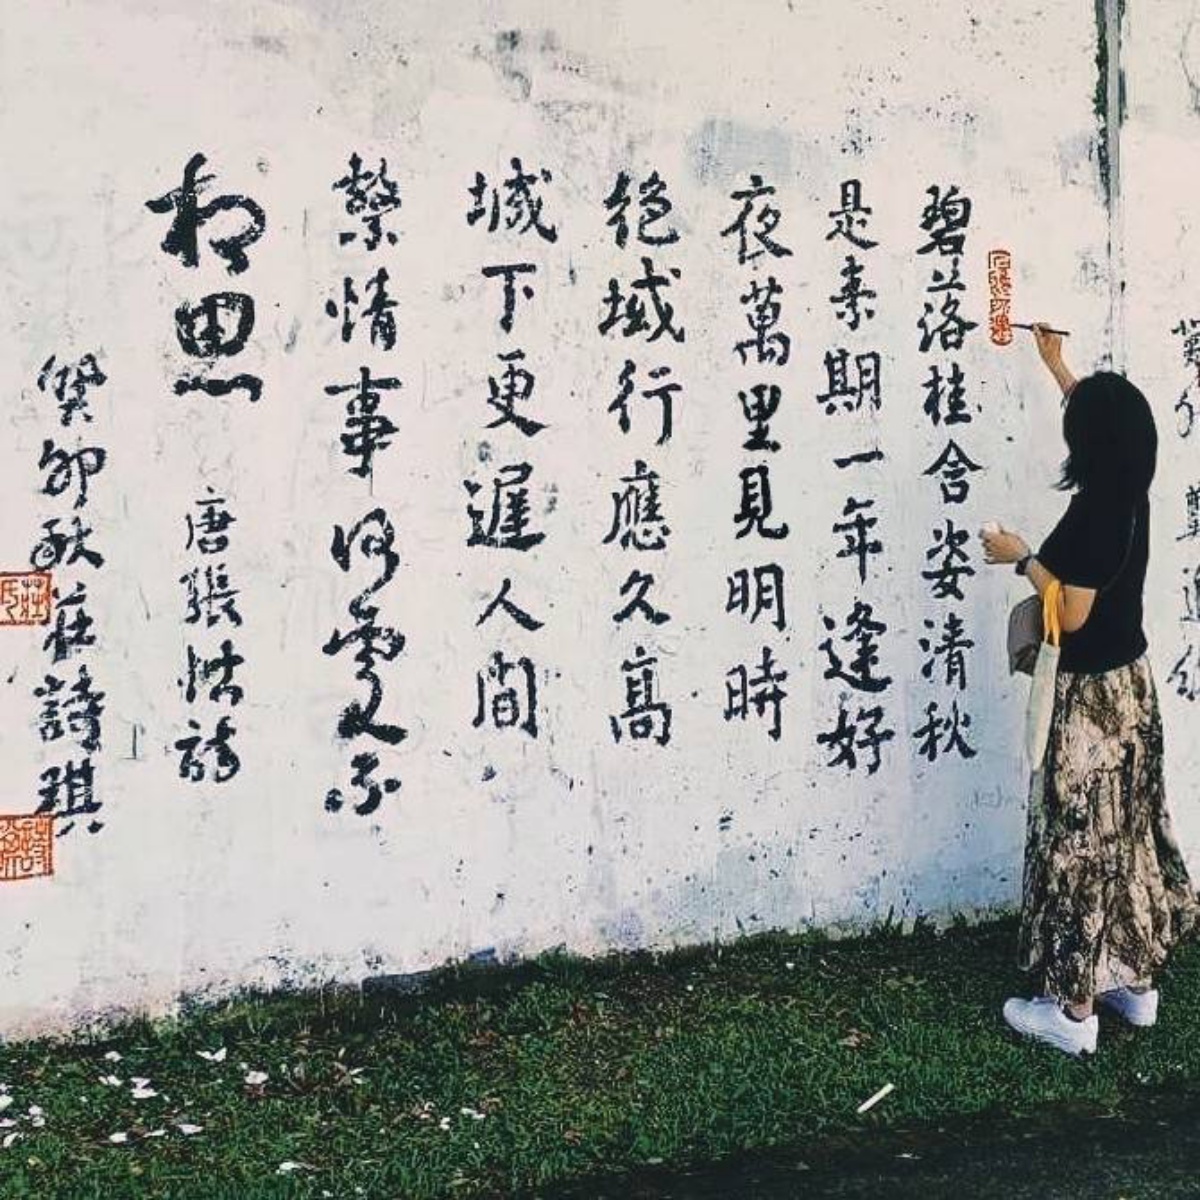 碧落桂含姿清秋
是素期一年逢好
夜萬里見明時
絕域行應久高
城下更遲人間
繫情事何處不
相思
唐張祜詩
癸卯秋莊詩琪